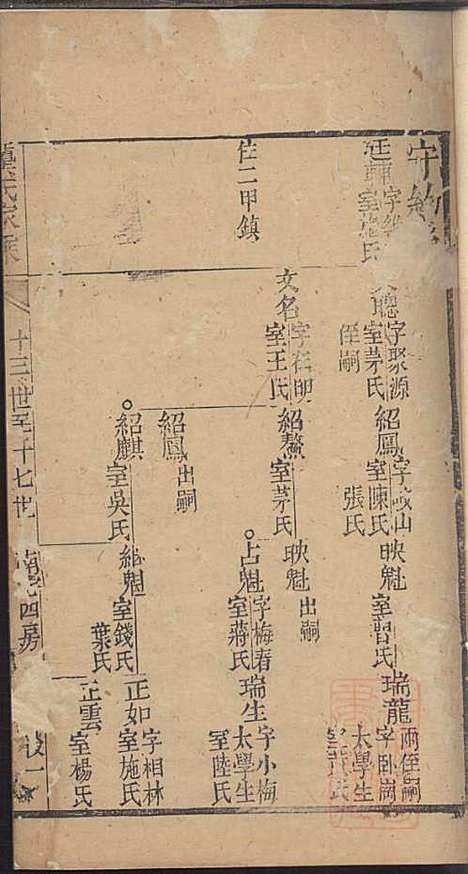 廷
室施氏
住二甲鎮
聰
字聚源
室茅氏
侄嗣
文名
字在明
室王氏
紹鳳
字岐山
室陳氏
張氏
紹鰲
室茅氏
紹鳳
出嗣
紹麒
室吳氏
映魁
室習氏
映魁
出嗣
占魁
字梅春
室蔣氏
繼魁
室錢氏
葉氏
瑞龍
兩侄嗣
字卧岡
太學生
瑞生
字小梅
太學生
室陸氏
正如
字相林
室施氏
正雲
室楊氏
氏家乘
十三世至十七世
四房